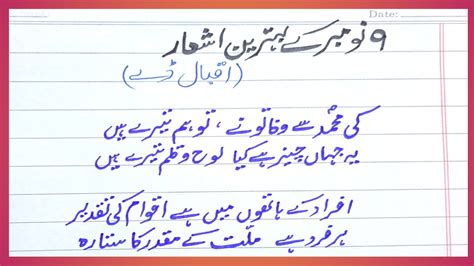 Date:
۹ نومبر کے بہترین اشعار
(اقبال ڈے)
کی محمدؐ سے وفا تو نے، تو ہم تیرے ہیں
یہ جہاں چیز ہے کیا لوح و قلم تیرے ہیں
افراد کے ہاتھوں میں ہے اقوام کی تقدیر
ہر فرد ہے ملّت کے مقدر کا ستارہ